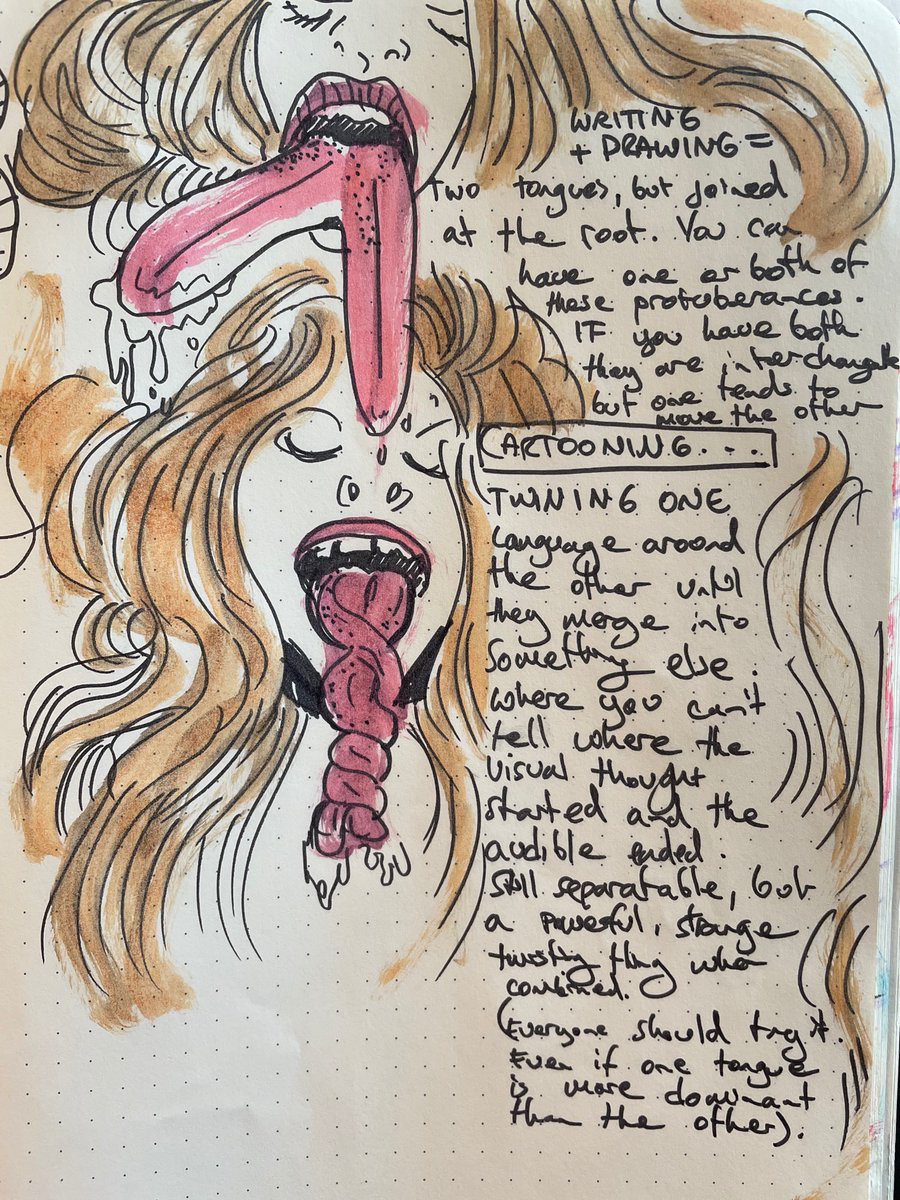 WRITING
+ DRAWING =
Two tongues, but joined
at the root. You can
have one or both of
these protuberances.
IF you have both
they are interchangable
but one tends to
move the other
CARTOONING...
TWINING ONE
Language around
the other until
they merge into
something else.
where you can't
tell where the
visual thought
started and the
audible ended.
Still separatable, but
a powerful, strange
twisty thing when
combined.
(Everyone should try it.
Even if one tongue
is more dominant
than the other).